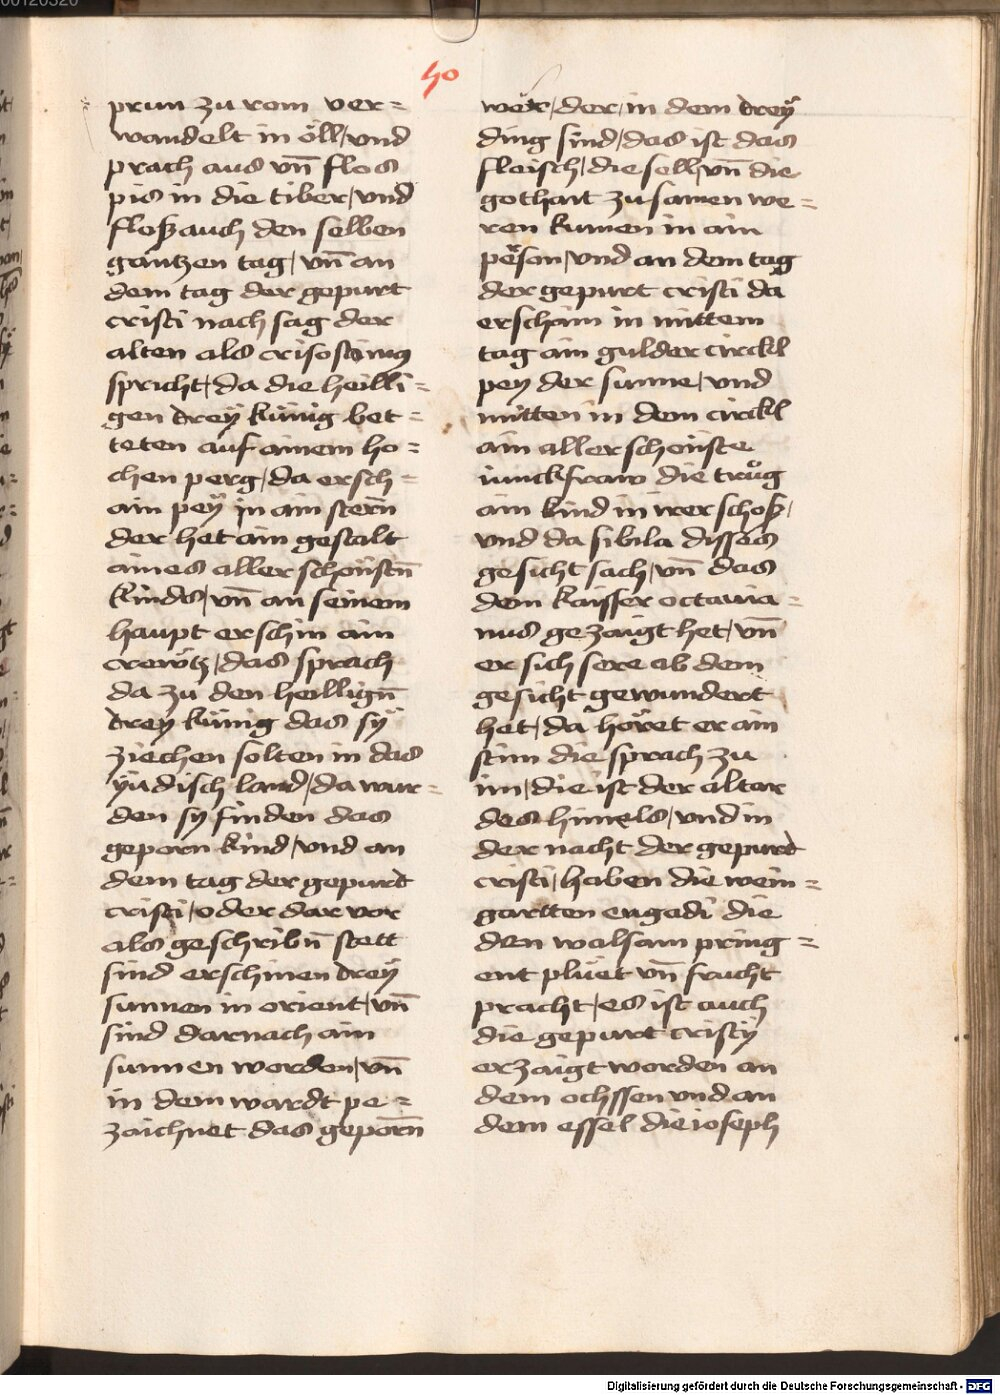 00120320
50
prun zu rom ver=
wandelt in öll/vnd
prach aus vn̄ flos
pis in die tiber/vnd
flosz auch den selben
gantzen tag/vn̄ an
dem tag der gepurt
cristi nach sag der
alten als crisostimus
spricht/da die heilli=
gen dreÿ künig bet=
teten auf ainem ho=
chen perg/da ersch=
ain peÿ in ain stern̄
der het ain gestalt
aines aller schönstn̄
kinds/vn̄ an seinem
haupt erschin ain
crewtz/das sprach
da zu den heillign̄
dreÿ künig das sÿ
ziechen solten in das
yüdisch land/da wur=
den sy finden das
geporn kind/vnd an
dem tag der gepurd
cristi/oder dar vor
als geschribn̄ stett
sind erschinen dreÿ
sunnen in orient/vn̄
sind darnach ain
sunnen worden/vn̄
in dem wardt pe=
zaichnet das geporn̄
wër/der/in dem dreÿ
ding sind/das ist das
flaisch/die sell/vn̄ die
gothait zu samen we=
ren kumen in ain
person/vnd an dem tag
der gepurt cristi da
erschain in mittem
tag ain gulder circkl
pey der sunne/vnd
mitten in dem circkl
ain aller schönste
iunckfraw die trůg
ain kind in irer schosz/
vnd da sibila disses
gesicht sach/vn̄ das
dem kaisser octauia=
nus gezaigt het/vn̄
er sich sere ab dem
gesicht gewundert
het/da höret er ain
stim die sprach zu
im/die ist der altar
des himels/vnd in
der nacht der gepurd
cristi/haben die wein=
gartten engadi die
den walsam pring=
ent plüet vn̄ frucht
pracht/es ist auch
die gepurt cristy
erzaigt worden an
dem ochssen vnd an
dem essel die ioseph
Digitalisierung gefördert durch die Deutsche Forschungsgemeinschaft - DFG